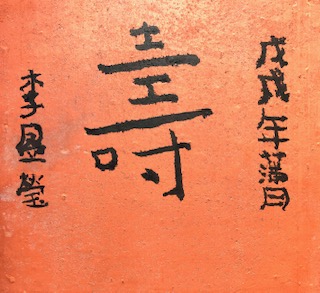 戊戌年蒲月
壽
李瑩